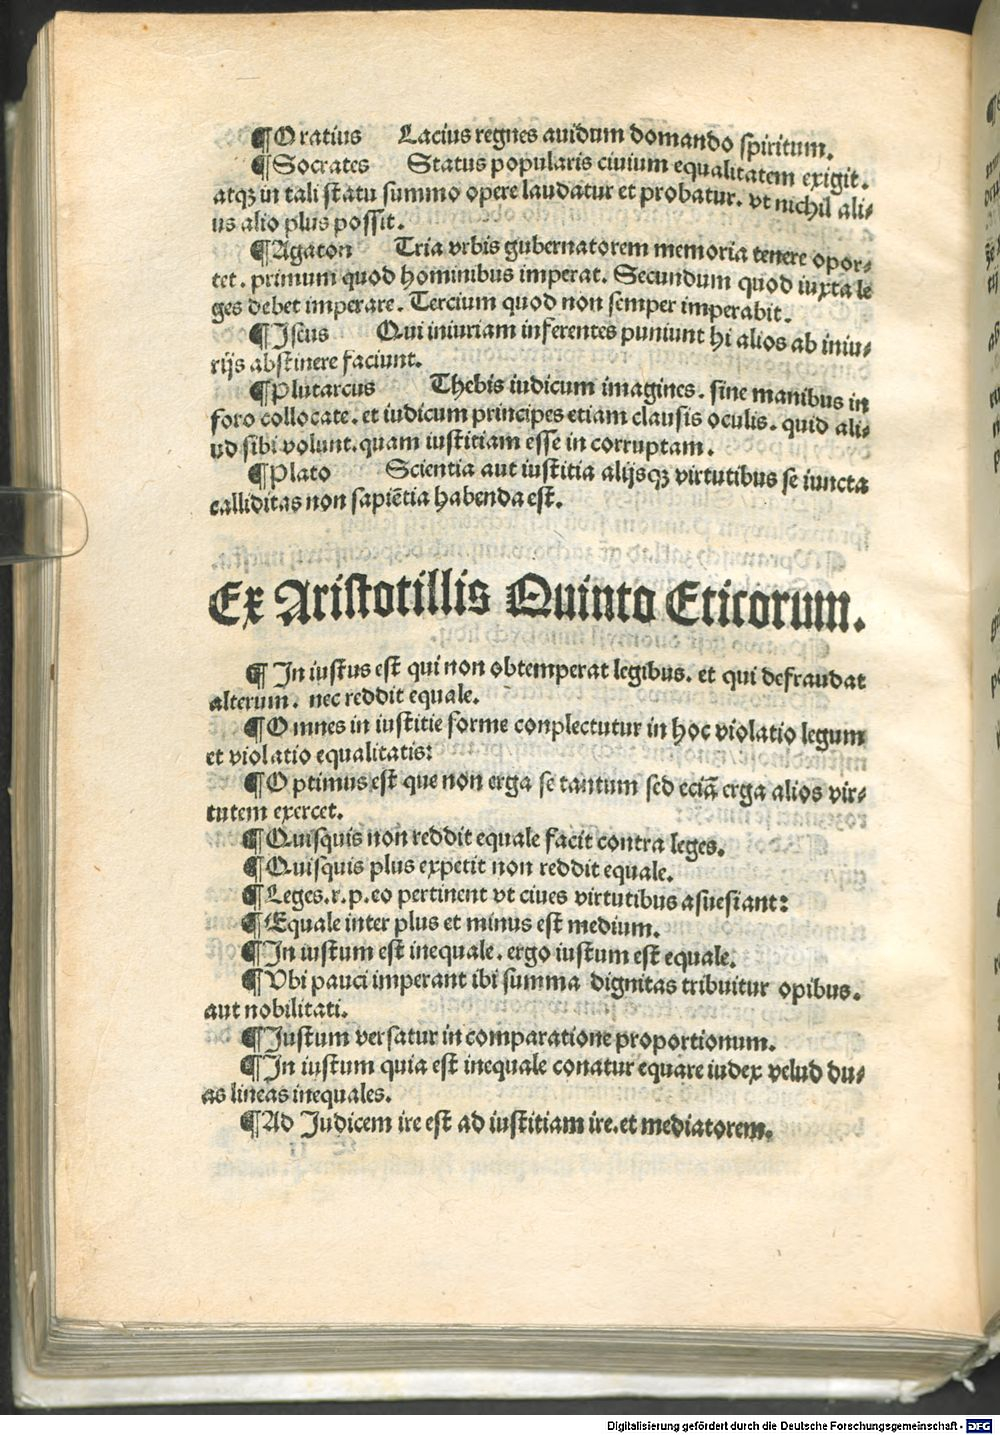 ¶Oratius Lacius regnes auidum domando spiritum.
¶Socrates Status popularis ciuium equalitatem exigit.
atqꝫ in tali statu summo opere laudatur et probatur. vt nichil ali⸗
us alio plus possit.
¶Agaton Tria vrbis gubernatorem memoria tenere opor⸗
tet. primum quod hominibus imperat. Secundum quod iuxta le
ges debet imperare. Tercium quod non semper imperabit.
¶Iscus Qui iniuriam inferentes puniunt hi alios ab iniu⸗
rijs abstinere faciunt.
¶Plutarcus Thebis iudicum imagines. sine manibus in
foro collocate. et iudicum principes etiam clausis oculis. quid ali⸗
ud sibi volunt. quam iustitiam esse in corruptam.
¶Plato Scientia aut iustitia alijsqꝫ virtutibus se iuncta
calliditas non sapiētia habenda est.
Ex Aristotillis Quinto Eticorum.
¶ In iustus est qui non obtemperat legibus. et qui defraudat
alterum. nec reddit equale.
¶Omnes in iustitie forme conplectutur in hoc violatio legum
et violatio equalitatis:
¶Optimus est que non erga se tantum sed eciā erga alios vir⸗
tutem exercet.
¶Quisquis non reddit equale facit contra leges.
¶Quisquis plus expetit non reddit equale.
¶Leges. r. p. eo pertinent vt ciues virtutibus asuesiant:
¶Equale inter plus et minus est medium.
¶In iustum est inequale. ergo iustum est equale.
¶Vbi pauci imperant ibi summa dignitas tribuitur opibus.
aut nobilitati.
¶Iustum versatur in comparatione proportionum.
¶In iustum quia est inequale conatur equare iudex velud du⸗
as lineas inequales.
¶Ad Iudicem ire est ad iustitiam ire. et mediatorem.
Digitalisierung gefördert durch die Deutsche Forschungsgemeinschaft - DFG